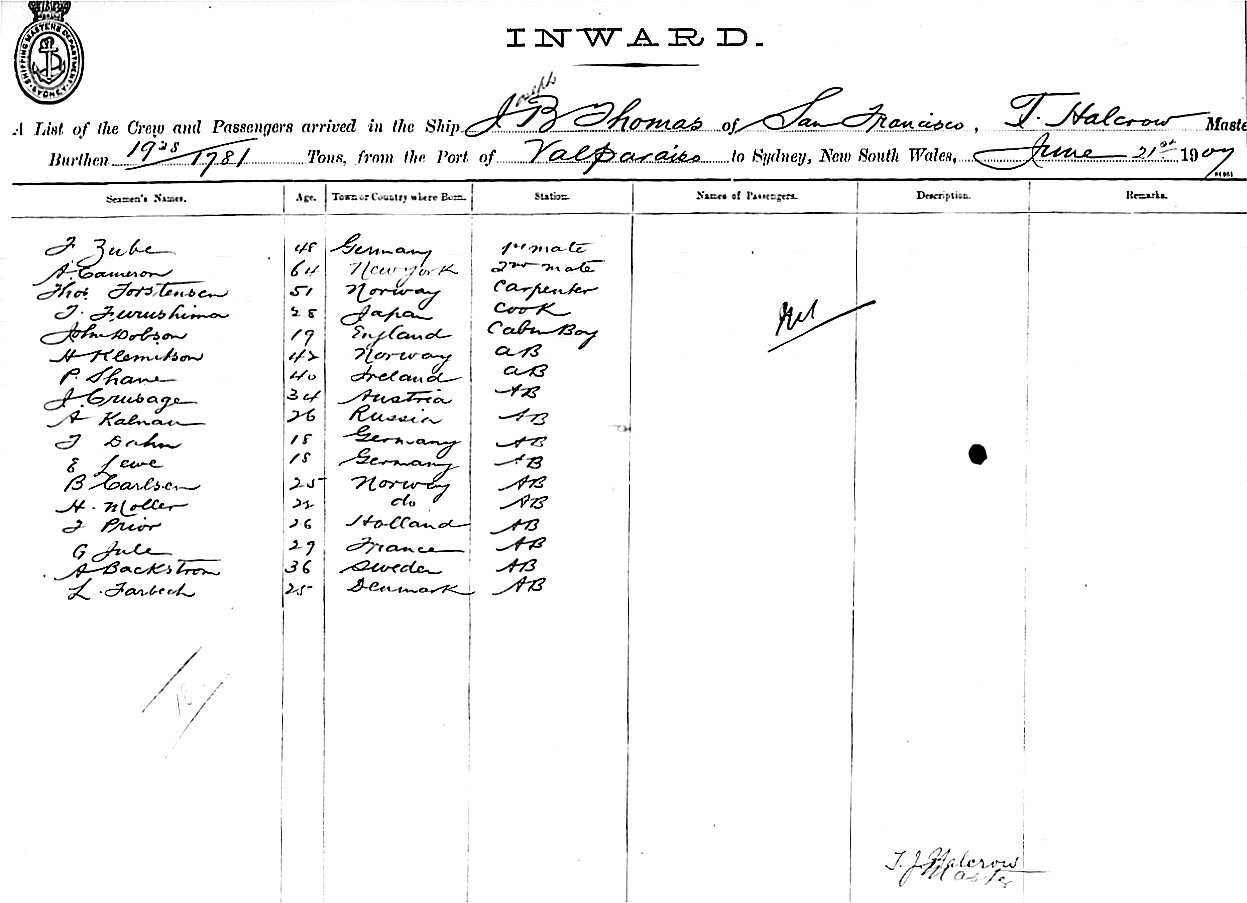 SHIPPING MASTERS DEPARTMENT SYDNEY
INWARD.
A List of the Crew and Passengers arrived in the Ship Joseph B Thomas of San Francisco, T. Halcrow Maste
Burthen 1938/1781 Tons, from the Port of Valparaiso to Sydney, New South Wales, June 21st 1907
Seamen's Names. Age. Town or Country where Born. Station. Names of Passengers. Description. Remarks.
Zube 48 Germany 1st mate
A. Cameron 64 New York 2nd mate
Thos. Torstensen 51 Norway Carpenter
T. Furushima 28 Japan Cook
John Dobson 19 England Cabin Boy
Nil
H Klemitson 42 Norway AB
P. Shane 40 Ireland AB
J. Crusage 34 Austria AB
A Kalnau 26 Russia AB
Dahm 18 Germany AB
E Lewe 18 Germany AB
B Carlsen 25 Norway AB
H. Moller 22 do AB
Prior 26 Holland AB
G Jule 29 France AB
A Backstrom 36 Sweden AB
L. Farbech 25 Denmark AB
18
T. J. Halcrow
Master